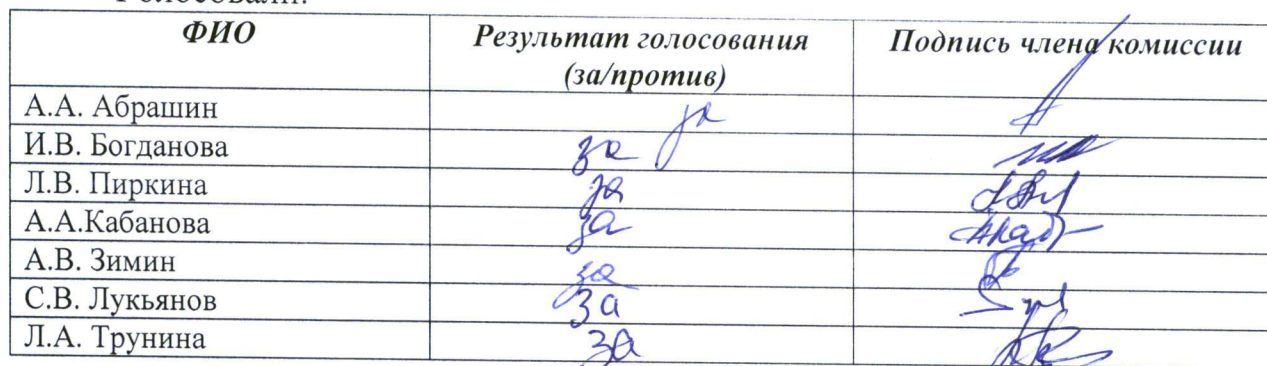 Голосовали:
ФИО Результат голосования (за/против) Подпись члена комиссии
А.А. Абрашин за
И.В. Богданова за
Л.В. Пиркина за
А.А.Кабанова за
А.В. Зимин за
С.В. Лукьянов за
Л.А. Трунина за